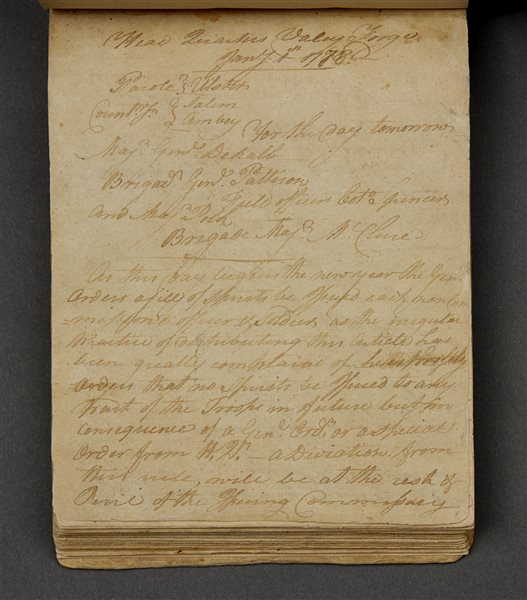 Head Quarters Valey Forge
Jany. 1st 1778
Parole } Ulster
Count.sn. } Salem
& Amboy
For the day tomorrow
Majr. Genl. Dekalb
Brigadr. Genl. Patterson
Field officers Colo. Spincer
and Majr. Polk
Brigade Majr. McClure
As this Day begins the new year the Genl.
Orders a jill of Spirits be Issued each non Com
=missiond officer & Soldier as the irregular
Practice of distributing this Article has
been greatly complaind of he
orders that no Spirits be Issued to any
Part of the Troops in future but in
consequence of a Genl. Ordr. or a special
Order from H. Qrs. — a Diviation from
this rule, will be at the risk &
Peril of the Issuing Commissary